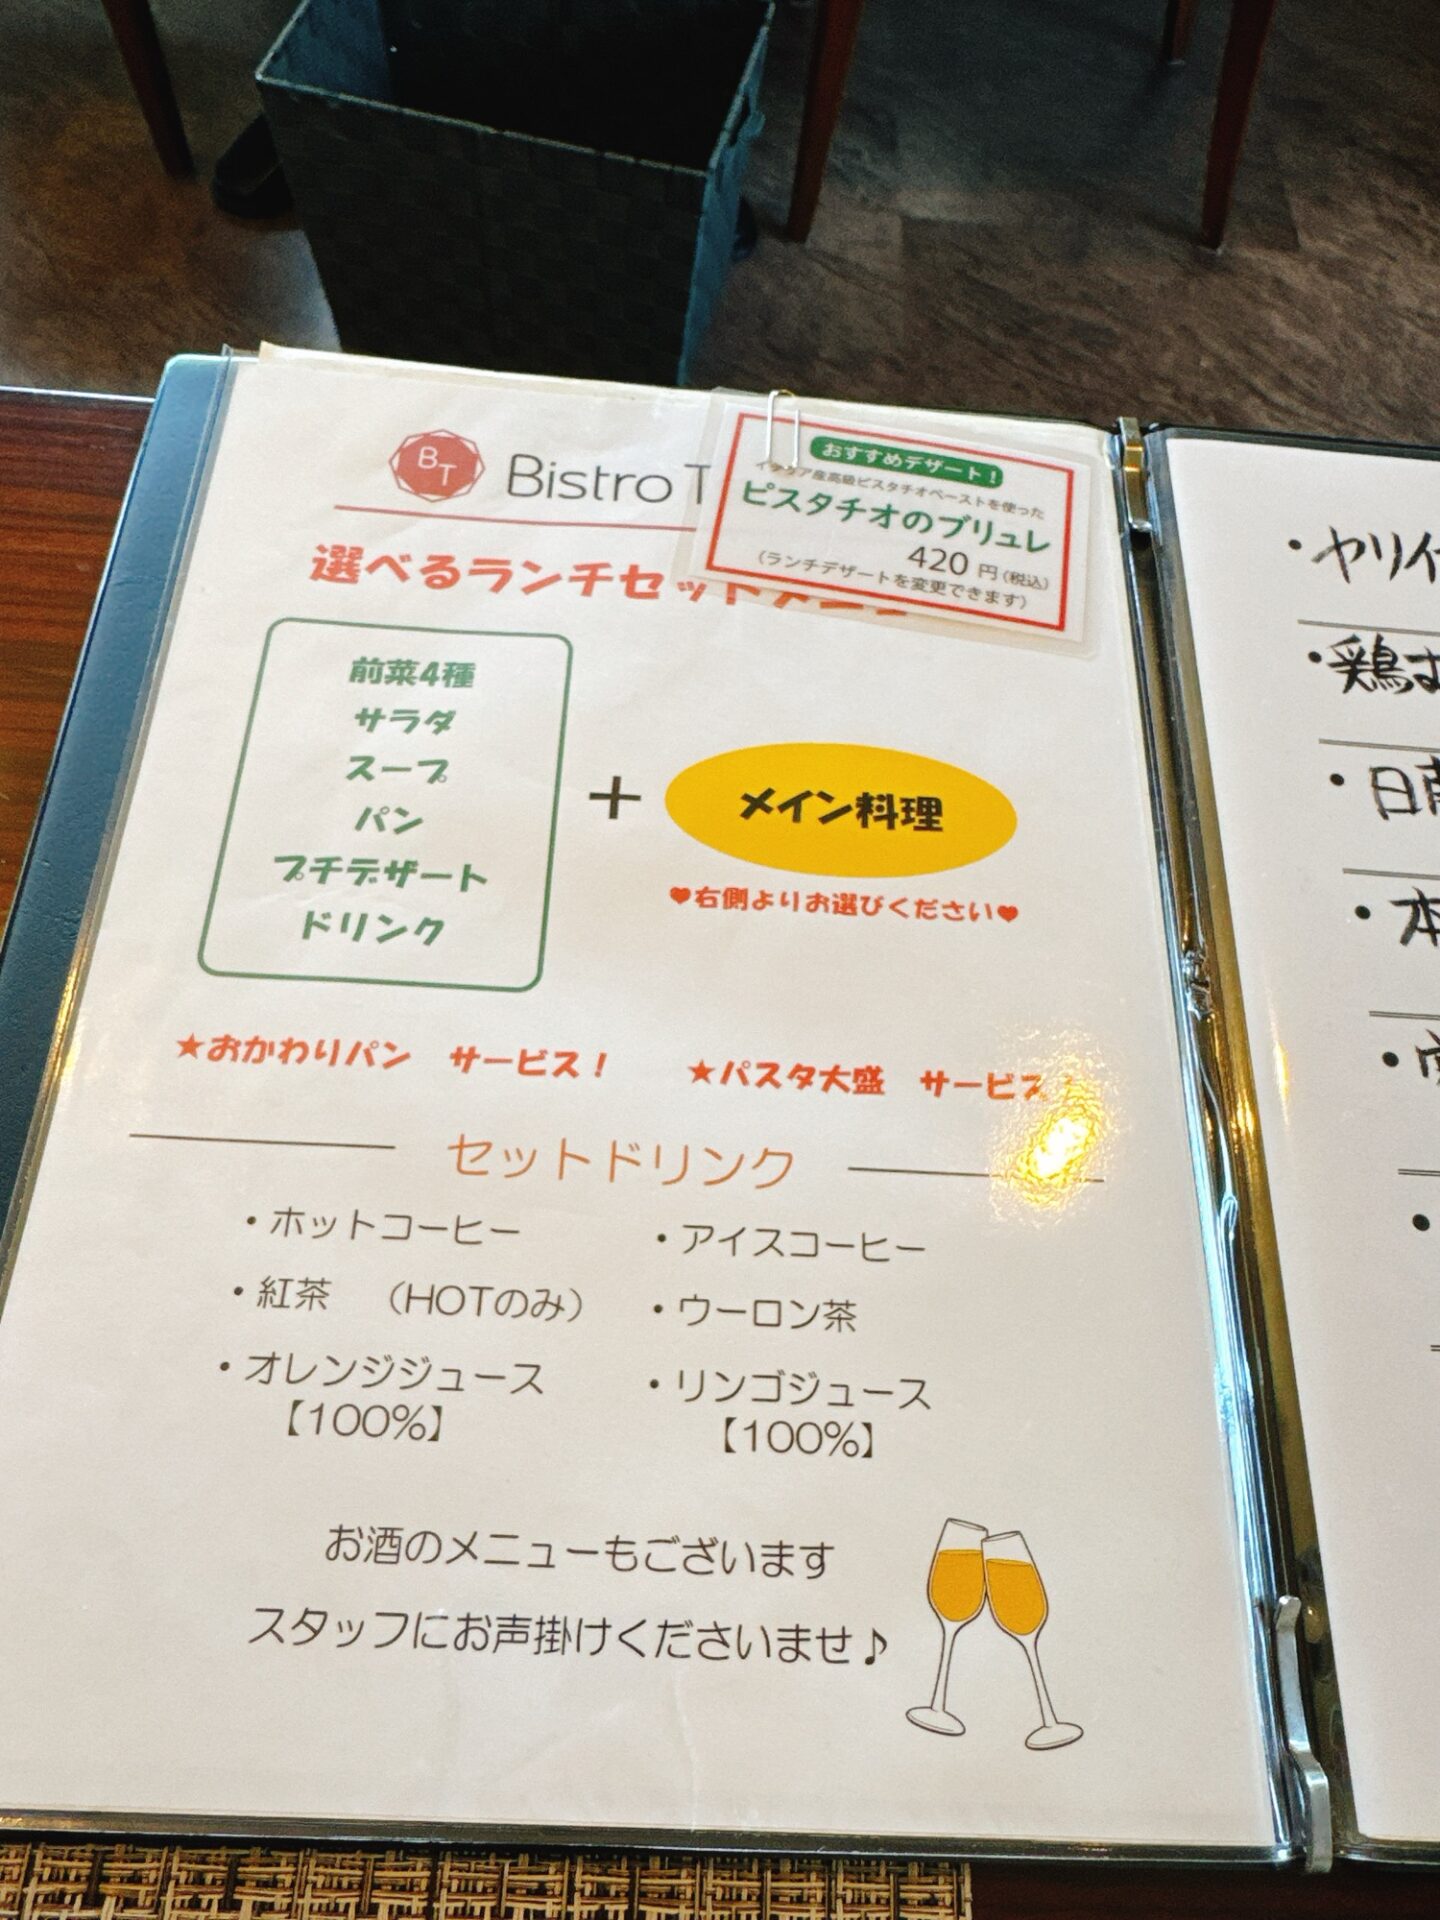 BT
Bistro T
おすすめデザート！
イタリア産高級ピスタチオペーストを使った
ピスタチオのブリュレ
420円(税込)
(ランチデザートを変更できます)
選べるランチセットメニュー
前菜4種
サラダ
スープ
パン
プチデザート
ドリンク
+
メイン料理
♥右側よりお選びください♥
★おかわりパン　サービス！　★パスタ大盛　サービス！
セットドリンク
・ホットコーヒー　・アイスコーヒー
・紅茶　（HOTのみ）　・ウーロン茶
・オレンジジュース　・リンゴジュース
【100%】　【100%】
お酒のメニューもございます
スタッフにお声掛けくださいませ♪
・ヤリイ
・鶏む
・日
・本